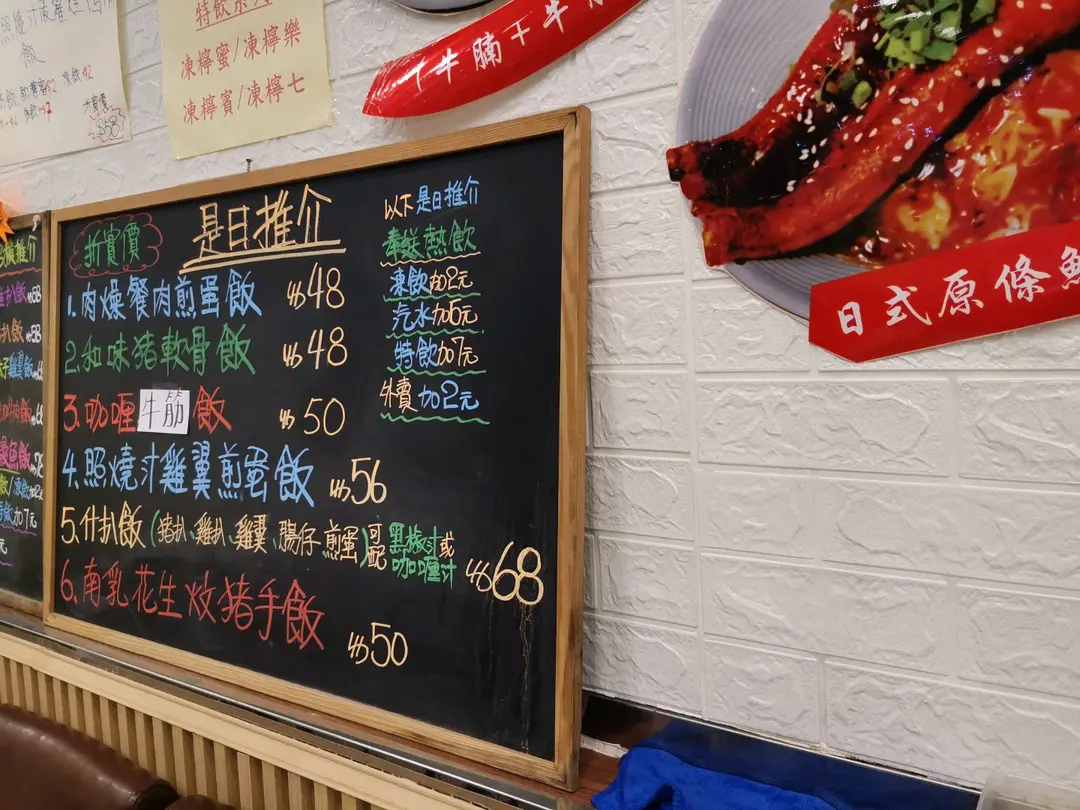 飯
特飲系列
凍檸蜜/凍檸樂
凍檸賓/凍檸七
牛腩+牛
日式原條
折實價
是日推介
1.肉燥餐肉煎蛋飯 $48
2.和味猪軟骨飯 $48
3.咖喱牛筋飯 $50
4.照燒汁雞翼煎蛋飯 $56
5.什扒飯(猪扒、雞扒、雞翼、腸仔、煎蛋)可配黑椒汁或咖喱汁 $68
6.南乳花生炆猪手飯 $50
以下是日推介
奉送熱飲
凍飲加2元
汽水加5元
特飲加7元
外賣加2元
推介
加7元
元